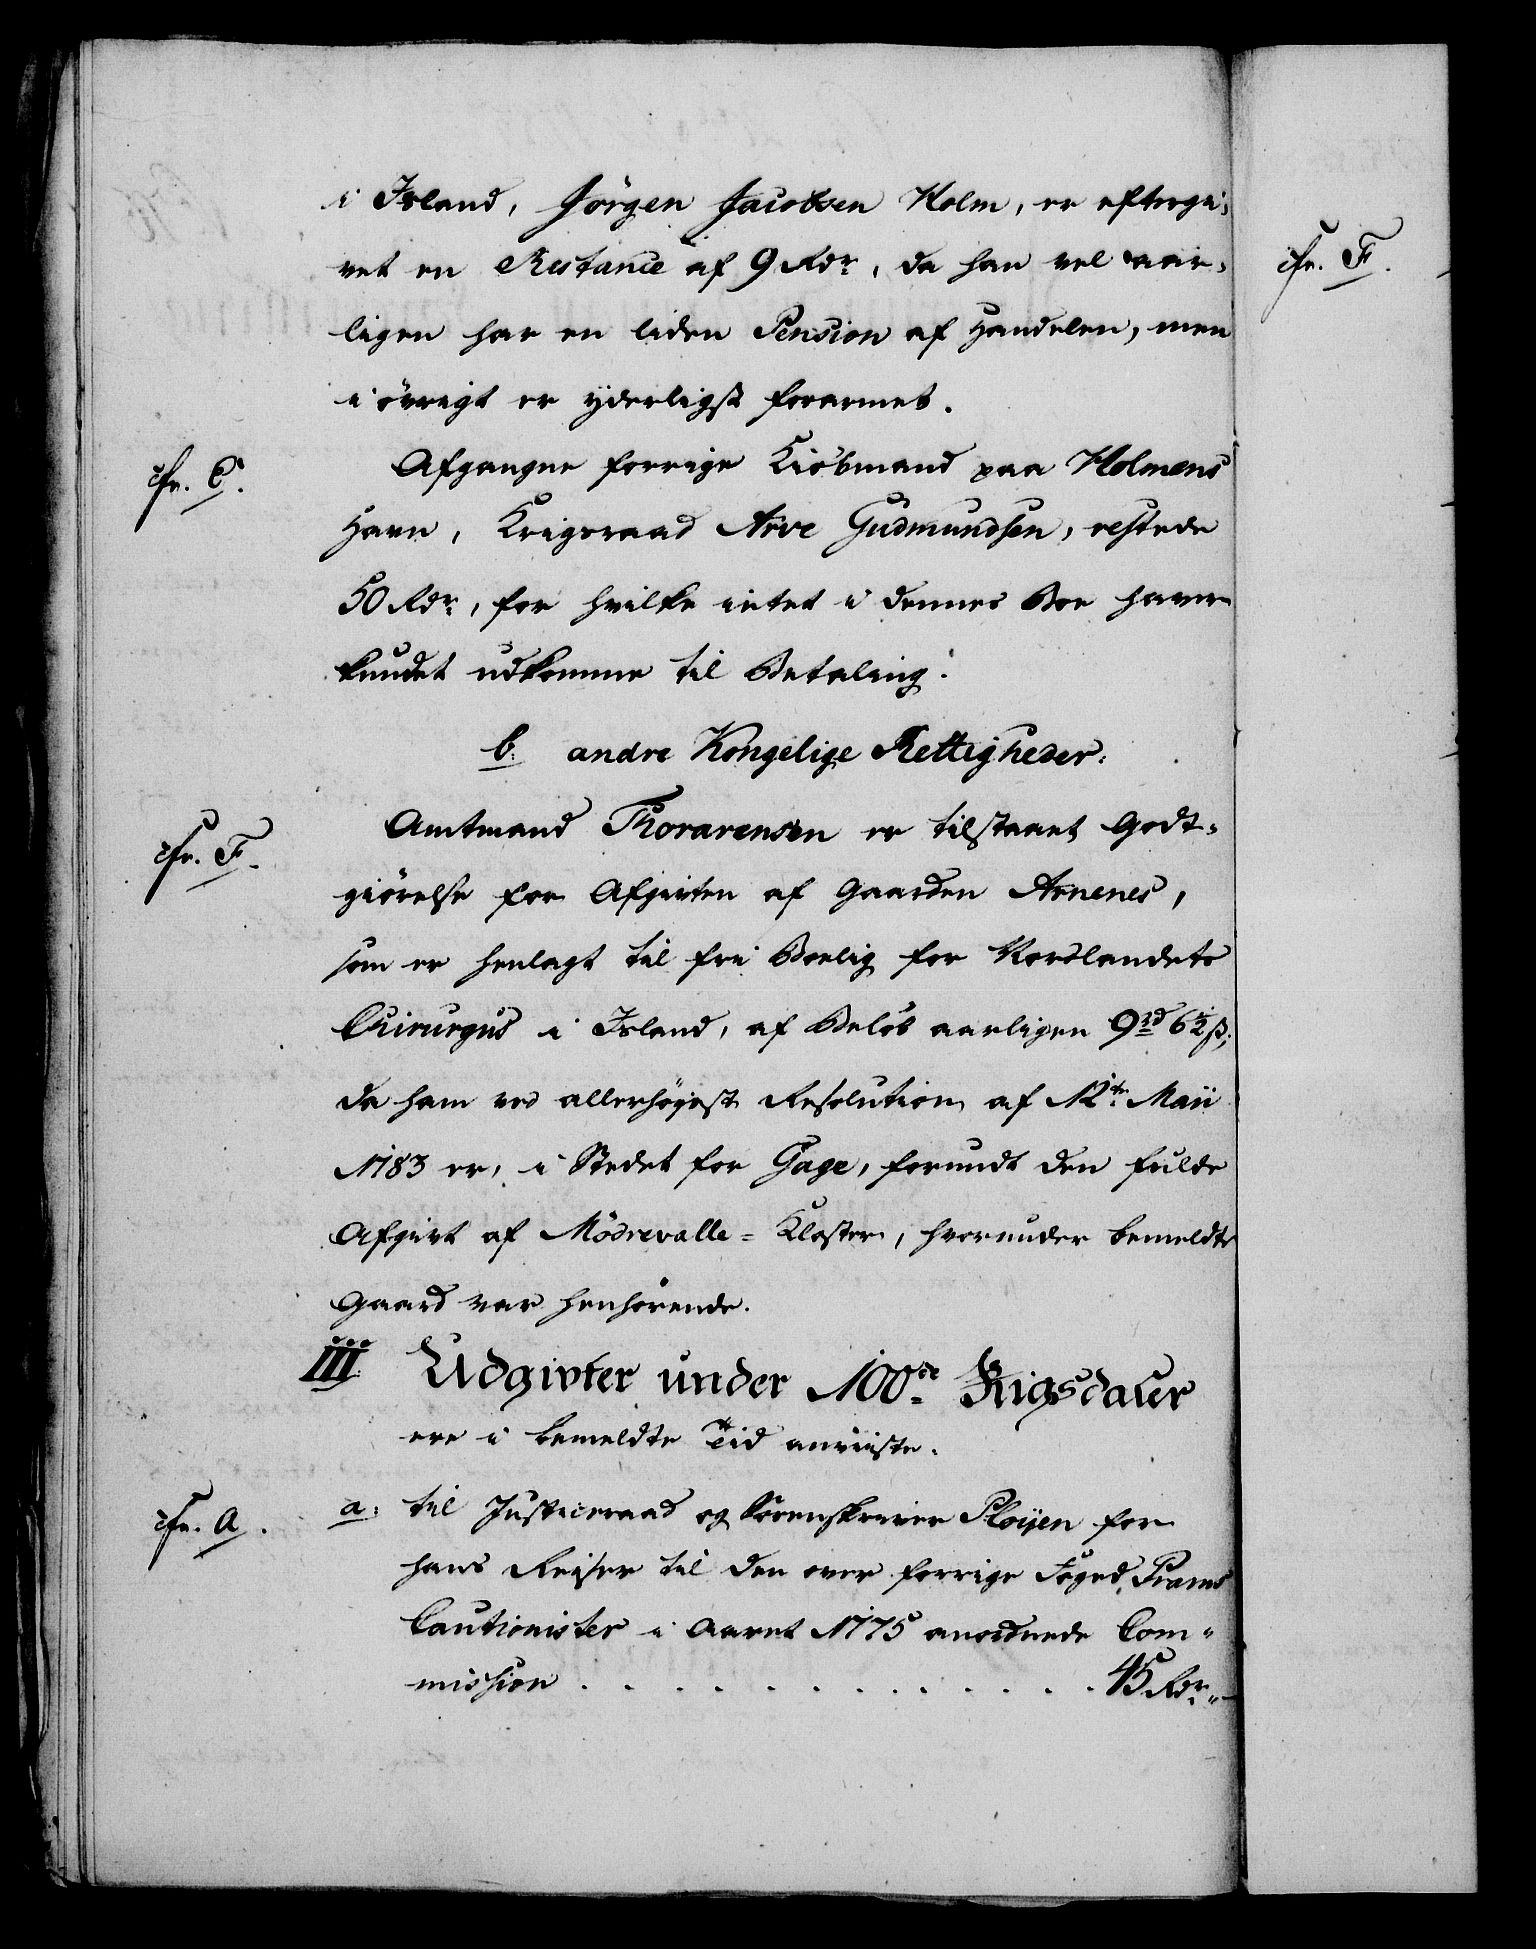 i Island, Jörgen Jacobsen Holm, er eftergi-
vet en Restance af 9 Rdr, da han vel aar-
ligen har en liden Pension af Handelen, men
i övrigt er yderligst forarmet.
cfr. C.
Afgangne forrige Kiöbmand paa Holmens
Havn, Krigsraad Arve Gudmundsen, restede
50 Rdr, for hvilke intet i dennes Boe haver
kundet udkomme til Betaling.
b. andre Kongelige Rettigheder.
cfr. F.
Amtmand Thorarensen er tilstaaet Godt-
giörelse for Afgivten af Gaarden Arnenes,
som er henlagt til fri Boelig for Nordlandets
Chirurgus i Island, af Belöb aarligen 9 rd 6½ ß;
da ham ved allerhöyest Resolution af 12te Maii
1783 er, i Stedet for Gage, forundt den fulde
Afgivt af Mödrevalle-Kloster, hvorunder bemeldte
Gaard var henhörende.
III. Udgivter under 100de Rigsdaler
ere i bemeldte Tid anviiste.
cfr. A.
a: til Justiceraad og Sorenskriver Ployen for
hans Reiser til den over forrige Foged, Prams
Cautionister i Aaret 1775 anordnede Com-
mission . . . . . . . . . . . . . . 45 Rdr„
cfr. F.